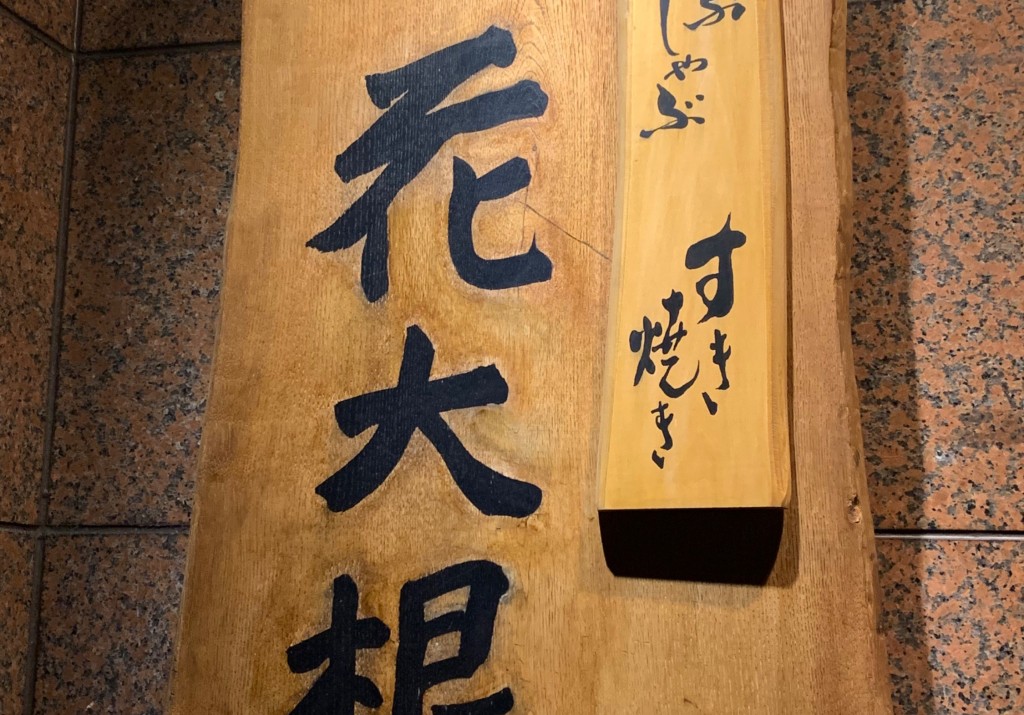 ぶ
しゃぶ
すき
焼き
花大根